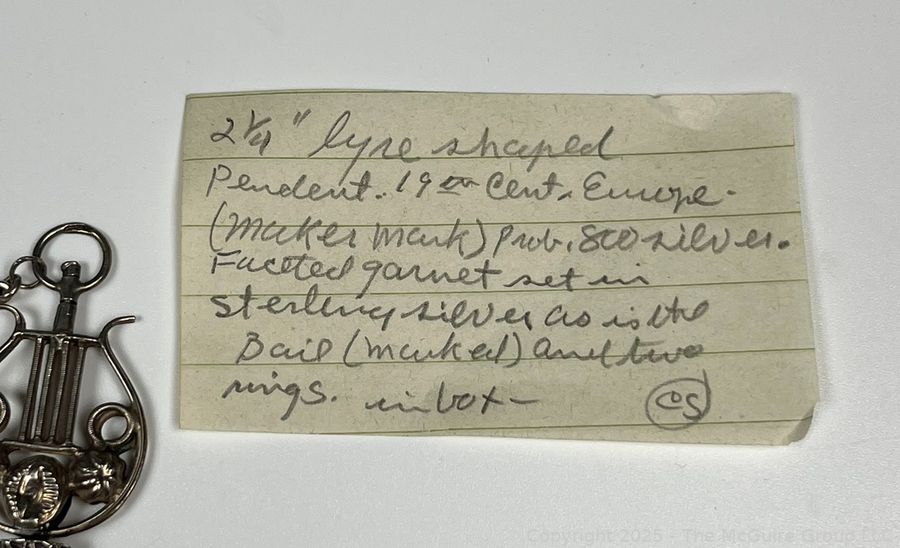 2 1/4" lyre shaped
Pendent. 19th Cent. Europe-
(Maker Mark) Prob. 800 silver.
Faceted garnet set in
sterling silver as is the
Bail (marked) and two
rings. in box-
CS
Copyright 2025 - The McGuire Group LLC